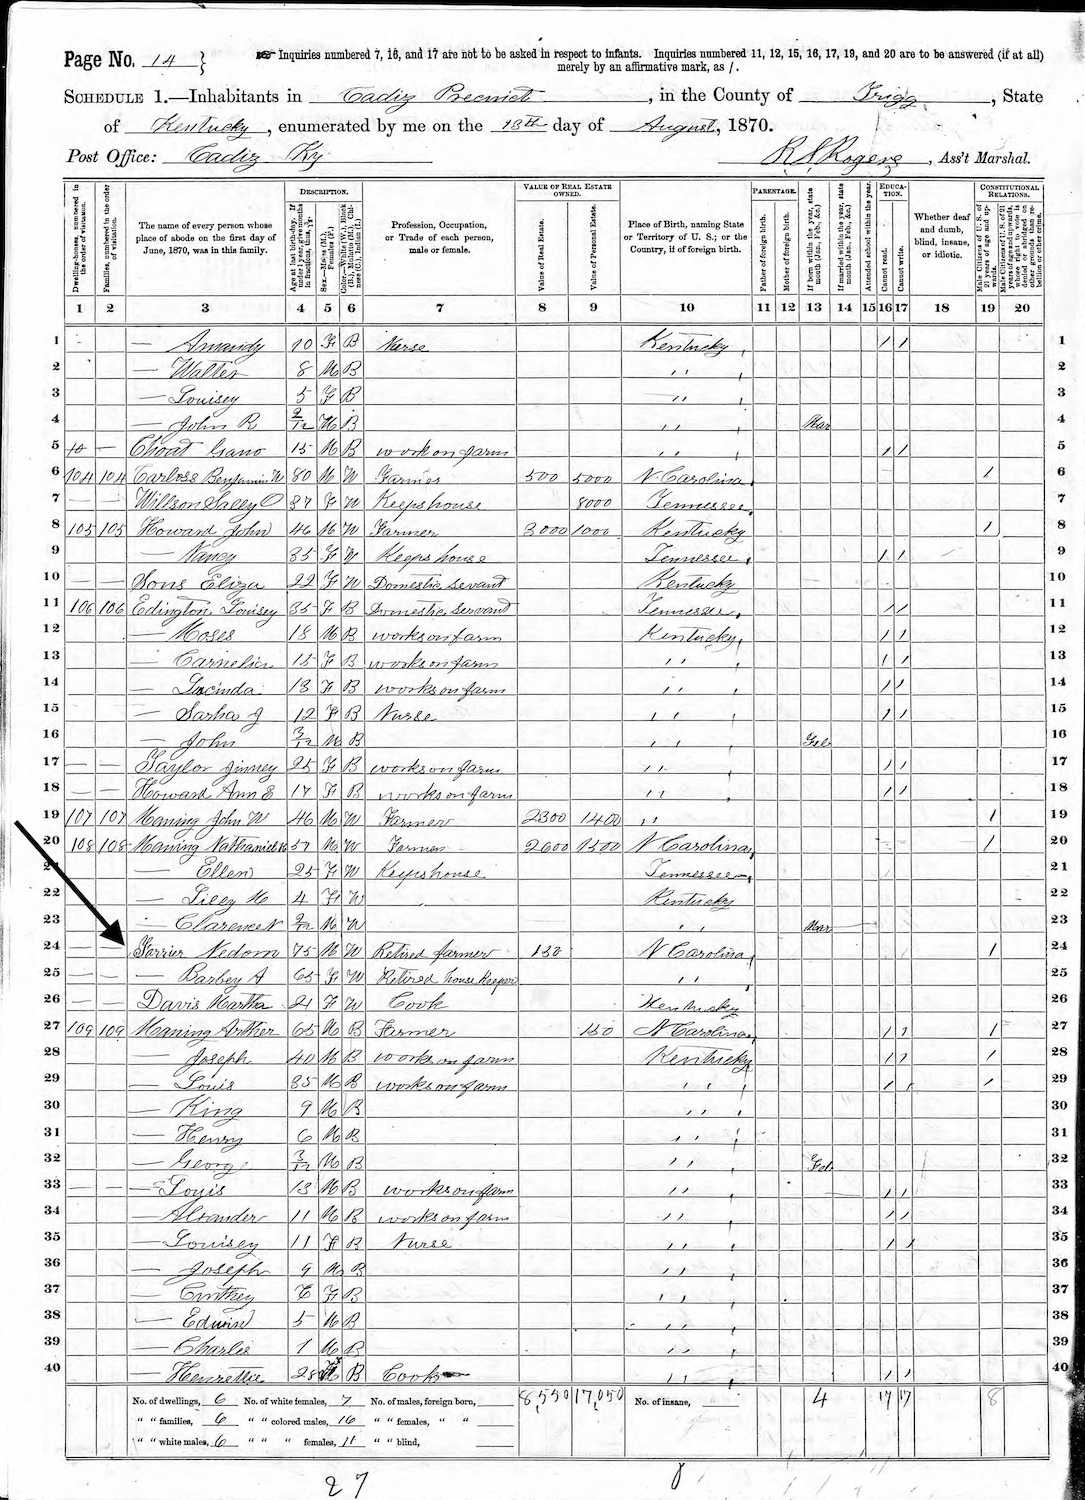 Page No. 14 }
Inquiries numbered 7, 16, and 17 are not to be asked in respect to infants. Inquiries numbered 11, 12, 15, 16, 17, 19, and 20 are to be answered (if at all)
merely by an affirmative mark, as /.
SCHEDULE 1.—Inhabitants in Cadiz Precinct, in the County of Trigg, State
of Kentucky, enumerated by me on the 18th day of August, 1870.
Post Office: Cadiz Ky
R A Rogers, Ass't Marshal.
Dwelling-houses, numbered in the order of visitation.
Families, numbered in the order of visitation.
The name of every person whose place of abode on the first day of June, 1870, was in this family.
DESCRIPTION.
Age at last birth-day. If under 1 year, give months in fractions, thus, 3/12
Sex.—Males (M.), Females (F.)
Color.—White (W.), Black (B.), Mulatto (M.), Chinese (C.), Indian (I.)
Profession, Occupation, or Trade of each person, male or female.
VALUE OF REAL ESTATE OWNED.
Value of Real Estate.
Value of Personal Estate.
Place of Birth, naming State or Territory of U. S.; or the Country, if of foreign birth.
PARENTAGE.
Father of foreign birth.
Mother of foreign birth.
If born within the year, state month (Jan., Feb., &c.)
If married within the year, state month (Jan., Feb., &c.)
Attended school within the year.
EDUCATION.
Cannot read.
Cannot write.
Whether deaf and dumb, blind, insane, or idiotic.
CONSTITUTIONAL RELATIONS.
Male Citizens of U. S. of 21 years of age and upwards.
Male Citizens of U. S. of 21 years of age and upwards, whose right to vote is denied or abridged on other grounds than rebellion or other crime.
1 2 3 4 5 6 7 8 9 10 11 12 13 14 15 16 17 18 19 20
1 — Amandy 10 F B Nurse Kentucky / / 1
2 — Walter 8 M B " 2
3 — Louisey 5 F B " 3
4 — John R 2/12 M B " Mar 4
5 — Choat 15 M B work on farm " / / 5
6 104 104 Carloss Benjamin W 80 M W Farmer 500 5000 N Carolina / 6
7 Willson Sally 37 F W Keeps house 8000 Tennessee 7
8 105 105 Howard John 46 M W Farmer 3000 1000 Kentucky / 8
9 — Nancy 35 F W Keeps house Tennessee / / 9
10 — — Sons Eliza 22 F W Domestic servant Kentucky 10
11 106 106 Edington Louisey 35 F B Domestic Servant Tennessee / / 11
12 — Moses 18 M B works on farm Kentucky / / 12
13 — Carnelia 15 F B works on farm " / / 13
14 — Lucinda 13 F B works on farm " / / 14
15 — Sarha J 12 F B Nurse " / / 15
16 — John 3/12 M B " Feb 16
17 — — Taylor Jinney 25 F B works on farm " / / 17
18 — — Howard Ann E 17 F B works on farm " / / 18
19 107 107 Maning John W 46 M W Farmer 2300 1400 " / 19
20 108 108 Maning Nathaniel 57 M W Farmer 2600 1500 N Carolina / 20
21 — Ellen 25 F W Keeps house Tennessee 21
22 — Lilly M 4 F W Kentucky 22
23 — Clarence N 2/12 M W " Mar 23
24 — — Farrier Nedom 75 M W Retired farmer 150 N Carolina / 24
25 — — — Barbey A 65 F W Retired house keeper " 25
26 — — Davis Martha 21 F W Cook Kentucky 26
27 109 109 Maning Arther 65 M B Farmer 150 N Carolina / / / 27
28 — Joseph 40 M B works on farm Kentucky / / / 28
29 — Louis 35 M B works on farm " / / / 29
30 — King 9 M B " 30
31 — Henry 6 M B " 31
32 — George 3/12 M B " Feb 32
33 — — — Louis 13 M B works on farm " / / 33
34 — Alxander 11 M B works on farm " / / 34
35 — Louisey 11 F B Nurse " / / 35
36 — Joseph 9 M B " 36
37 — Cinthey 6 F B " 37
38 — Edwin 5 M B " 38
39 — Charlie 1 M B " 39
40 — Henrettie 28 B Cook " / / 40
No. of dwellings, 6 No. of white females, 7 No. of males, foreign born, 8,550 17,050 No. of insane, 4 17 17 8
" " families, 6 " " colored males, 16 " " females, " "
" " white males, 6 " " " females, 11 " " blind,
27